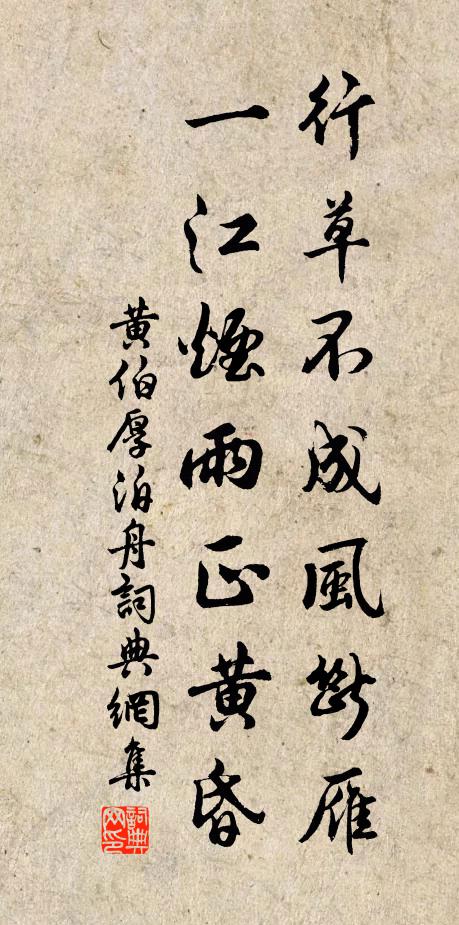 行草不成風斷雁
一江煙雨正黃昏
黃伯厚泊舟詞典網集
詞典
网印